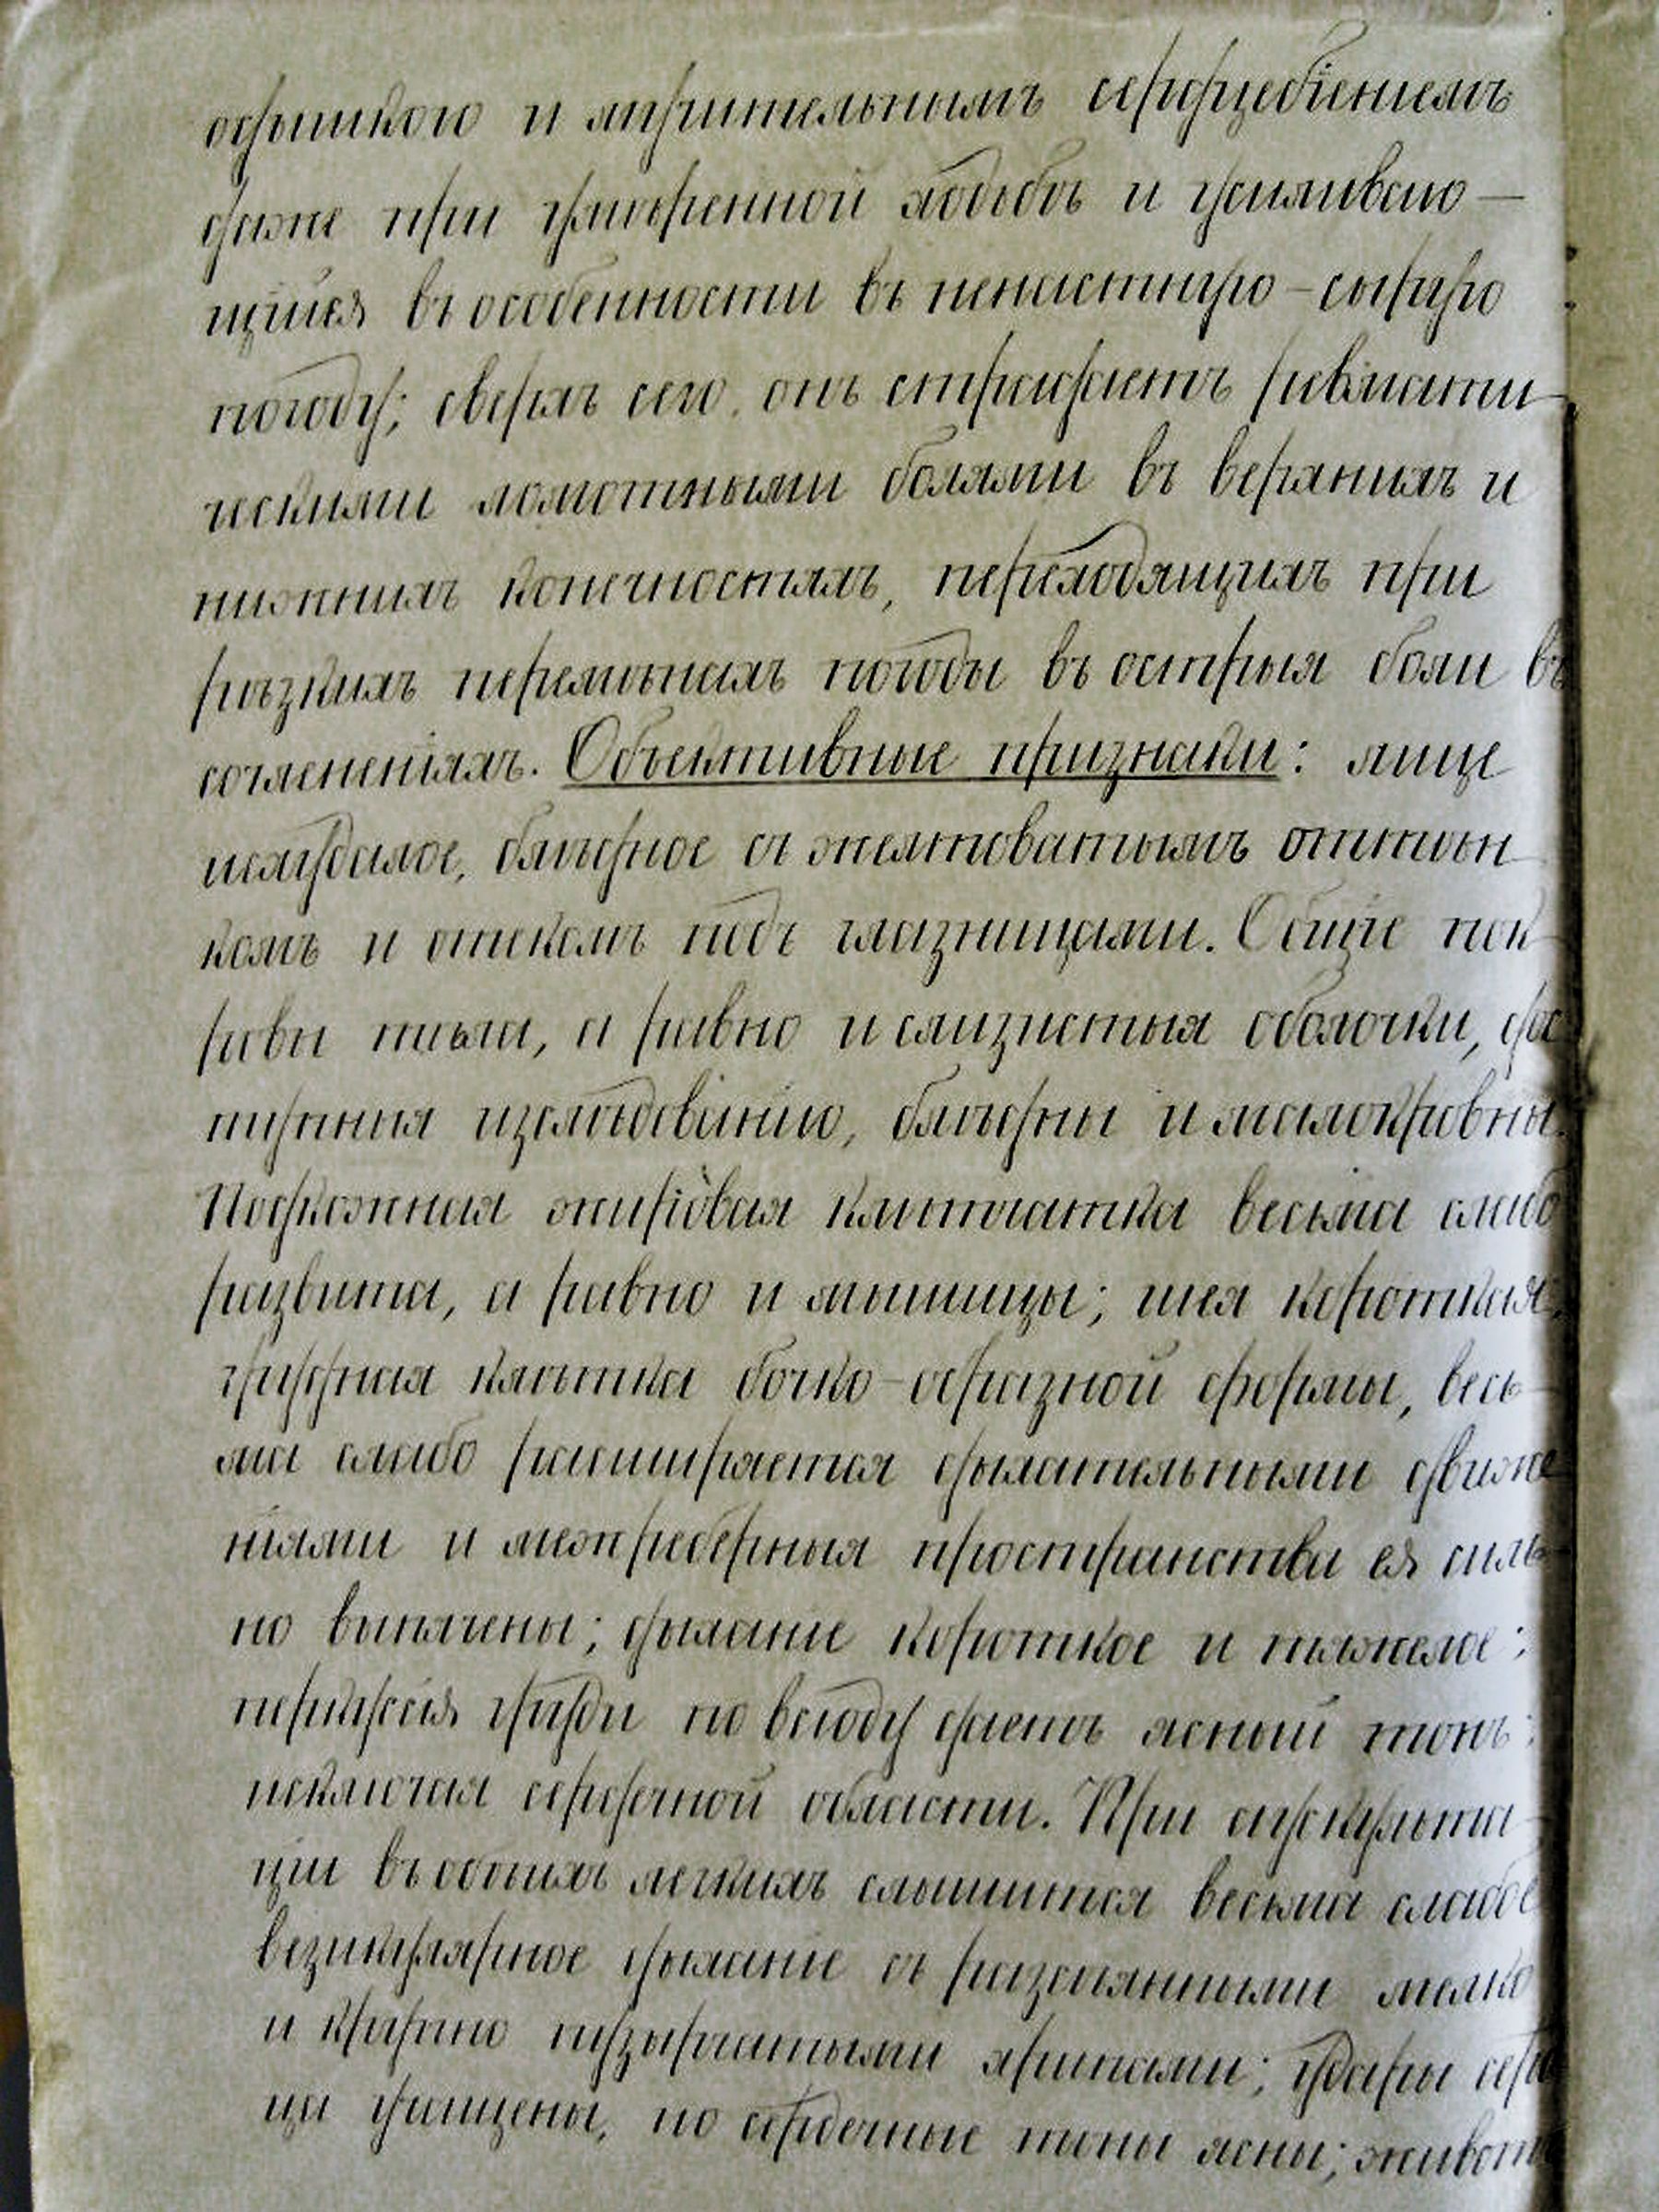 одышкою и мучительнымъ сердцебіеніемъ
даже при умѣренной ходьбѣ и усиливаю-
щійся въ особенности въ ненастную-сырую
погоду; сверхъ сего, онъ страдаетъ ревмати-
ческими ломотными болями въ верхнихъ и
нижнихъ конечностяхъ, переходящихъ при
рѣзкихъ перемѣнахъ погоды въ острыя боли въ
сочлененіяхъ. Объективные признаки: лице
исхудалое, блѣдное съ желтоватымъ оттѣн-
комъ и отекомъ подъ глазницами. Общіе пок-
ровы тѣла, а равно и слизистыя оболочки, дос
тупныя изслѣдованію, блѣдны и малокровны.
Подкожная жировая клѣтчатка весьма слабо
развита, а равно и мышицы; шея короткая;
грудная клѣтка бочко-образной формы, весь-
ма слабо расширяется дыхательными движе
ніями и межреберныя пространства ея силь-
но выпячены; дыханіе короткое и тяжелое;
перкусія груди по всюду даетъ ясный тонъ:
исключая сердечной области. При аускульта-
ціи въ обоихъ легкихъ слышится весьма слабое
везикулярное дыханіе съ разсѣянными мелко
и крупно пузырчатыми хрипами; удары серд
ца учащены, но сердечные тоны ясны; животъ